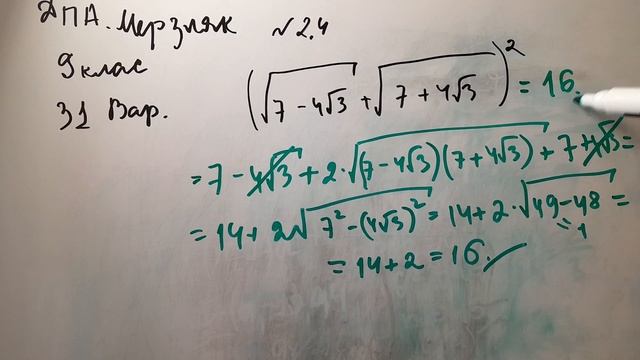 ДПА. Мерзляк №2.4
9 клас
31 Вар.
(√(7 − 4√3) + √(7 + 4√3))² = 16.
= 7 − 4√3 + 2·√((7 − 4√3)(7 + 4√3)) + 7 + 4√3 =
= 14 + 2√(7² − (4√3)²) = 14 + 2·√(49 − 48) =
= 1
= 14 + 2 = 16.